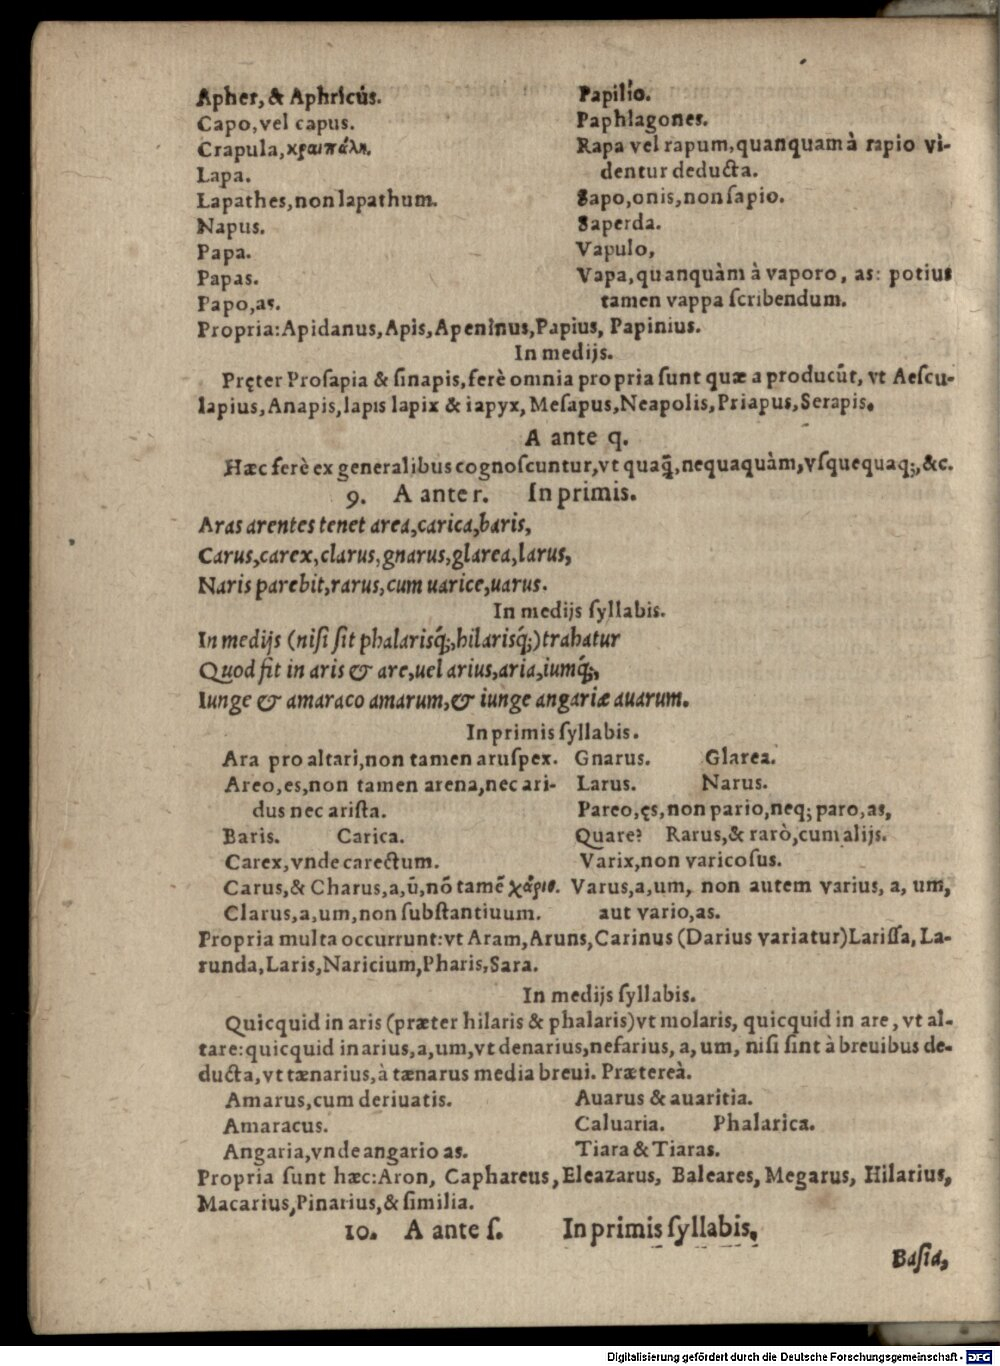 Apher, & Aphricús.
Capo, vel capus.
Crapula, κραιπάλη.
Lapa.
Lapathes, non lapathum.
Napus.
Papa.
Papas.
Papo, as.
Papilio.
Paphlagones.
Rapa vel rapum, quanquam à rapio vi-
dentur deducta.
Sapo, onis, non ſapio.
Saperda.
Vapulo,
Vapa, quanquàm à vaporo, as: potius
tamen vappa ſcribendum.
Propria: Apidanus, Apis, Apeninus, Papius, Papinius.
In medijs.
Pręter Proſapia & ſinapis, ferè omnia propria ſunt quæ a producũt, vt Aeſcu-
lapius, Anapis, lapis lapix & iapyx, Meſapus, Neapolis, Priapus, Serapis.
A ante q.
Hæc ferè ex generalibus cognoſcuntur, vt quaq̃, nequaquàm, vſquequaq;, &c.
9. A ante r. In primis.
Aras arentes tenet area, carica, baris,
Carus, carex, clarus, gnarus, glarea, larus,
Naris parebit, rarus, cum uarice, uarus.
In medijs ſyllabis.
In medijs (niſi ſit phalarisq́;, hilarisq́;) trahatur
Quod fit in aris & are, uel arius, aria, iumq́;,
Iunge & amaraco amarum, & iunge angariæ auarum.
In primis ſyllabis.
Ara pro altari, non tamen aruſpex.
Areo, es, non tamen arena, nec ari-
dus nec ariſta.
Baris. Carica.
Carex, vnde carectum.
Carus, & Charus, a, ũ, nõ tamẽ χάρις.
Clarus, a, um, non ſubſtantiuum.
Gnarus. Glarea.
Larus. Narus.
Pareo, ęs, non pario, neq; paro, as,
Quare? Rarus, & rarò, cum alijs.
Varix, non varicoſus.
Varus, a, um, non autem varius, a, um,
aut vario, as.
Propria multa occurrunt: vt Aram, Aruns, Carinus (Darius variatur) Lariſſa, La-
runda, Laris, Naricium, Pharis, Sara.
In medijs ſyllabis.
Quicquid in aris (præter hilaris & phalaris) vt molaris, quicquid in are, vt al-
tare: quicquid in arius, a, um, vt denarius, nefarius, a, um, niſi ſint à breuibus de-
ducta, vt tænarius, à tænarus media breui. Prætereà.
Amarus, cum deriuatis.
Amaracus.
Angaria, vnde angario as.
Auarus & auaritia.
Caluaria. Phalarica.
Tiara & Tiaras.
Propria ſunt hæc: Aron, Caphareus, Eleazarus, Baleares, Megarus, Hilarius,
Macarius, Pinarius, & ſimilia.
10. A ante ſ. In primis ſyllabis.
Baſia,
Digitalisierung gefördert durch die Deutsche Forschungsgemeinschaft - DFG